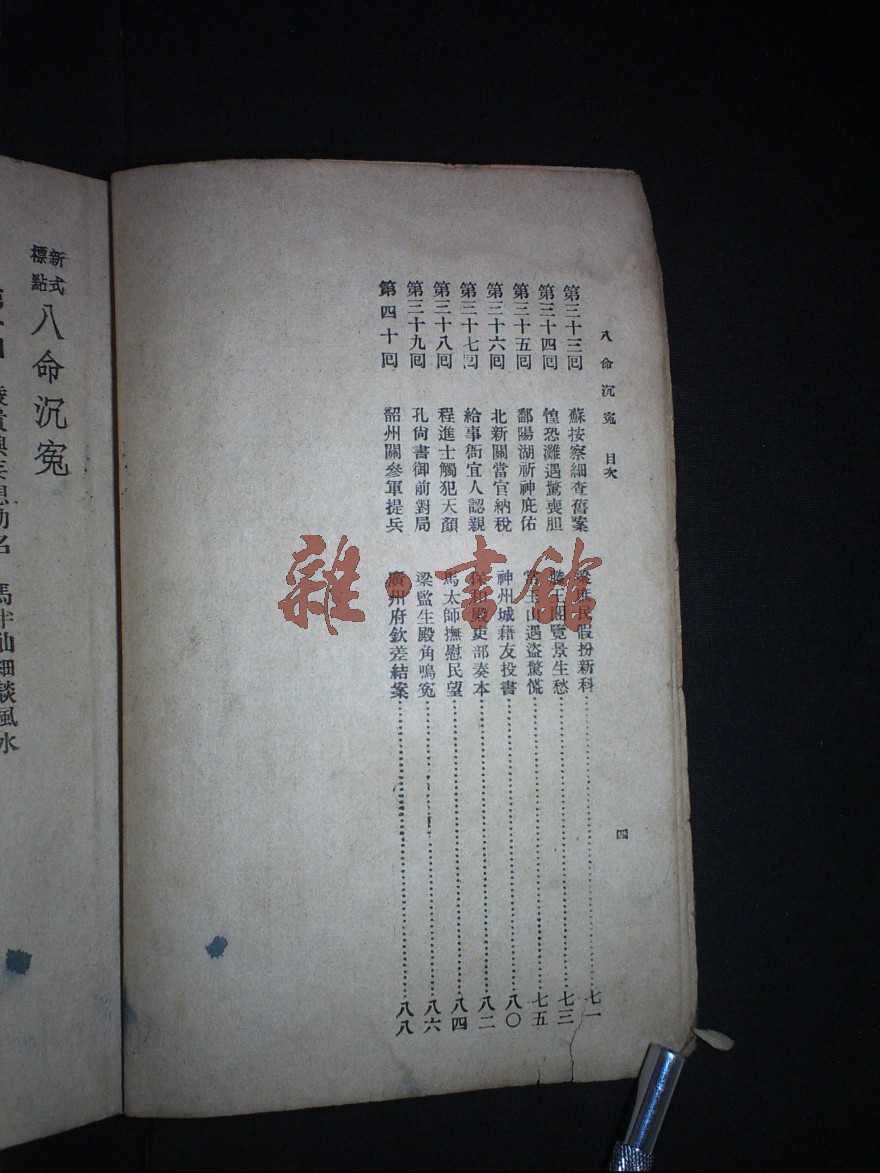 八命沉寃 目次
四
第三十三囘 蘇按察細查舊案 民假扮新科 七一
第三十四囘 惶恐灘遇驚喪胆 滕王閣覽景生愁 七三
第三十五囘 鄱陽湖祈神庇佑 常玉山遇盜驚慌 七五
第三十六囘 北新關當官納稅 神州城藉友投書 八〇
第三十七囘 給事衙宜人認親 保和殿吏部奏本 八二
第三十八囘 程進士觸犯天顏 馬太師撫慰民望 八四
第三十九囘 孔尙書御前對局 梁監生殿角鳴寃 八六
第四十囘 韶州關參軍提兵 廣州府欽差結案 八八
新式標點 八命沉寃
馬半仙細談風水
雜·書館